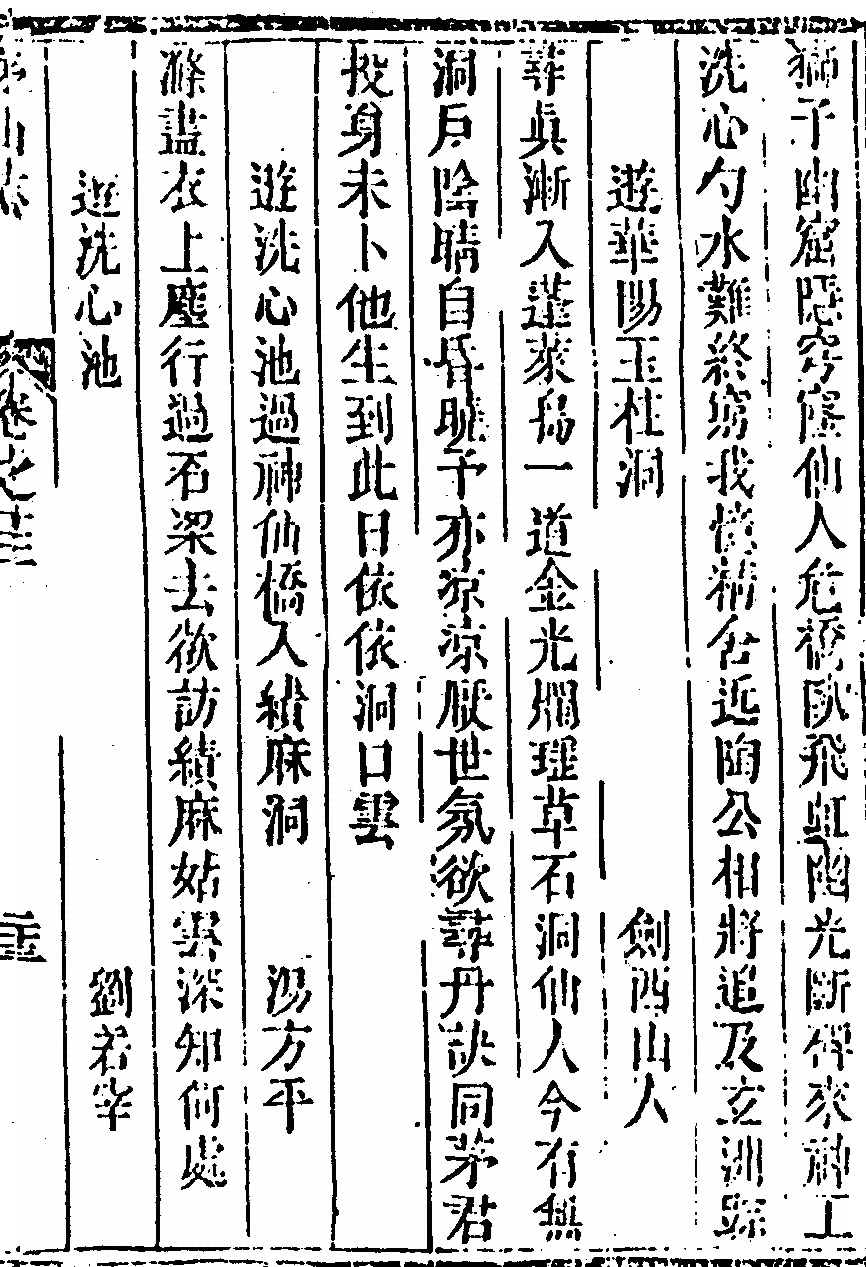 獅子幽窟隱穹窿仙人危橋臥飛虹幽光斷碑來神工
洗心勺水難終窮我憶精舍近陶公相將追及玄洲踪
遊華陽玉柱洞 劍西山人
尋眞漸入蓬萊島一道金光爛瑤草石洞仙人今有無
洞戶陰晴自昏曉予亦凉凉厭世氛欲尋丹訣同茅君
投身未卜他生到此日依依洞口雲
遊洗心池過神仙橋入績麻洞 湯方平
滌盡衣上塵行過石梁去欲訪績麻姑雲深知何處
遊洗心池 劉若宰
茅山志 卷之十三